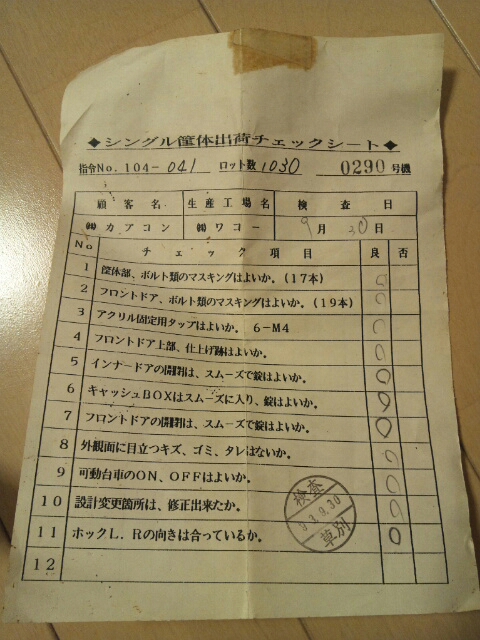 ◆シングル筐体出荷チェックシート◆
指令No. 104-041 ロット数 1030 0290号機
顧客名 生産工場名 検査日
㈱カプコン ㈱ワコー 9月30日
No チェック項目 良 否
1 筐体部、ボルト類のマスキングはよいか。(17本) ○
2 フロントドア、ボルト類のマスキングはよいか。(19本) ○
3 アクリル固定用タップはよいか。6-M4 ○
4 フロントドア上部、仕上げ跡はよいか。 ○
5 インナードアの開閉は、スムーズで錠はよいか。 ○
6 キャッシュBOXはスムーズに入り、錠はよいか。 ○
7 フロントドアの開閉は、スムーズで錠はよいか。 ○
8 外観面に目立つキズ、ゴミ、タレはないか。 ○
9 可動台車のON、OFFはよいか。 ○
10 設計変更箇所は、修正出来たか。 ○
11 ホックL.Rの向きは合っているか。 ○
12
検査
93.9.30
草別